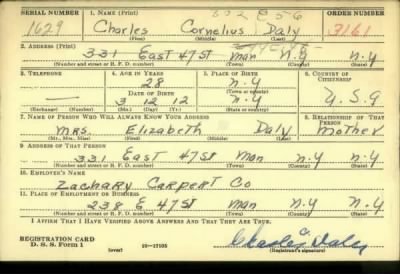 SERIAL NUMBER 1. NAME (Print) ORDER NUMBER
1629 Charles Cornelius Daly 3161
2. ADDRESS (Print)
331 East 47 St Man N.Y N.Y
(Number and street or R. F. D. number) (Town) (County) (State)
3. TELEPHONE 4. AGE IN YEARS 5. PLACE OF BIRTH 6. COUNTRY OF CITIZENSHIP
28 N.Y
DATE OF BIRTH (Town or county)
— 3 12 12 N.Y U.S.A
(Exchange) (Number) (Mo.) (Day) (Yr.) (State or country)
7. NAME OF PERSON WHO WILL ALWAYS KNOW YOUR ADDRESS 8. RELATIONSHIP OF THAT PERSON
Mrs. Elizabeth Daly Mother
(Mr., Mrs., Miss) (First) (Middle) (Last)
9. ADDRESS OF THAT PERSON
331 East 47 St Man N.Y N.Y
(Number and street or R. F. D. number) (Town) (County) (State)
10. EMPLOYER'S NAME
Zachary Carpert Co
11. PLACE OF EMPLOYMENT OR BUSINESS
238 E 47 St Man N.Y N.Y
(Number and street or R. F. D. number) (Town) (County) (State)
I AFFIRM THAT I HAVE VERIFIED ABOVE ANSWERS AND THAT THEY ARE TRUE.
REGISTRATION CARD
D. S. S. Form 1 (over) 16—17105 Charles C Daly
(Registrant's signature)